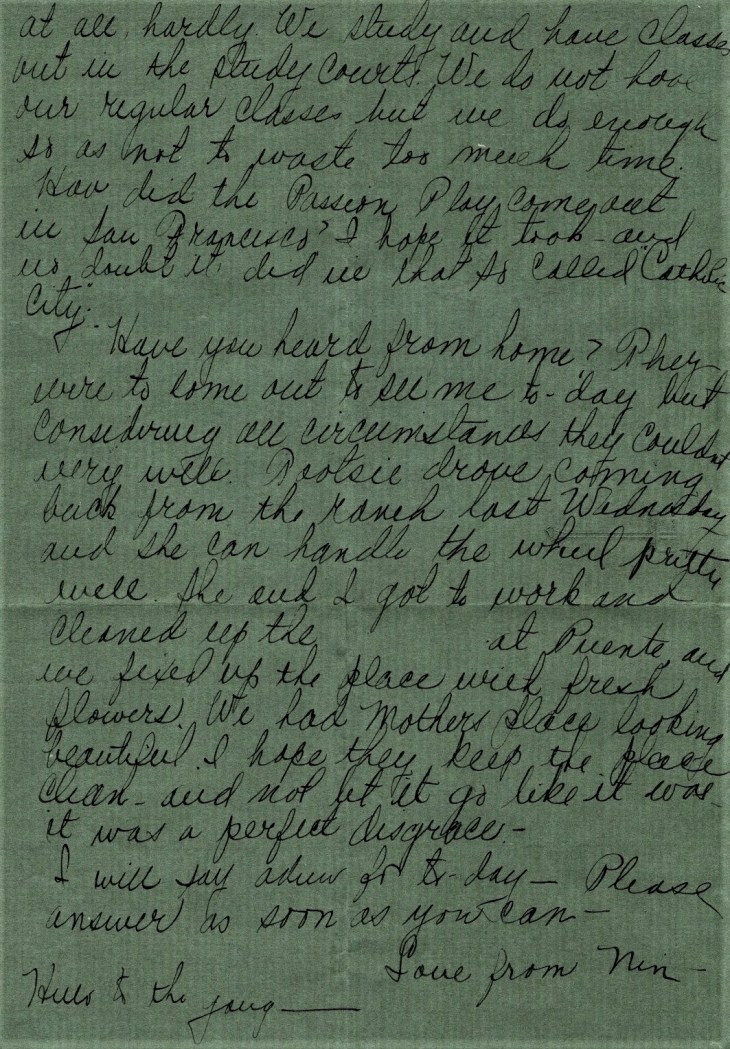 at all, hardly. We study and have classes
out in the study courts. We do not have
our regular classes but we do enough
so as not to waste too much time.
How did the Passion Play come out
in San Francisco? I hope it took - and
no doubt it did in that so called "Catholic
City".
Have you heard from home? They
were to come out to see me to-day but
considering all circumstances they couldn't
very well. Tootsie drove coming
back from the ranch last Wednesday
and she can handle the wheel pretty
well. She and I got to work and
cleaned up the at Puente, and
we fixed up the place with fresh
flowers. We had Mothers place looking
beautiful. I hope they keep the place
clean - and not let it go like it was -
it was a perfect disgrace -
I will say adieu for to-day - Please
answer as soon as you can -
Love from Nin -
Hello to the gang -